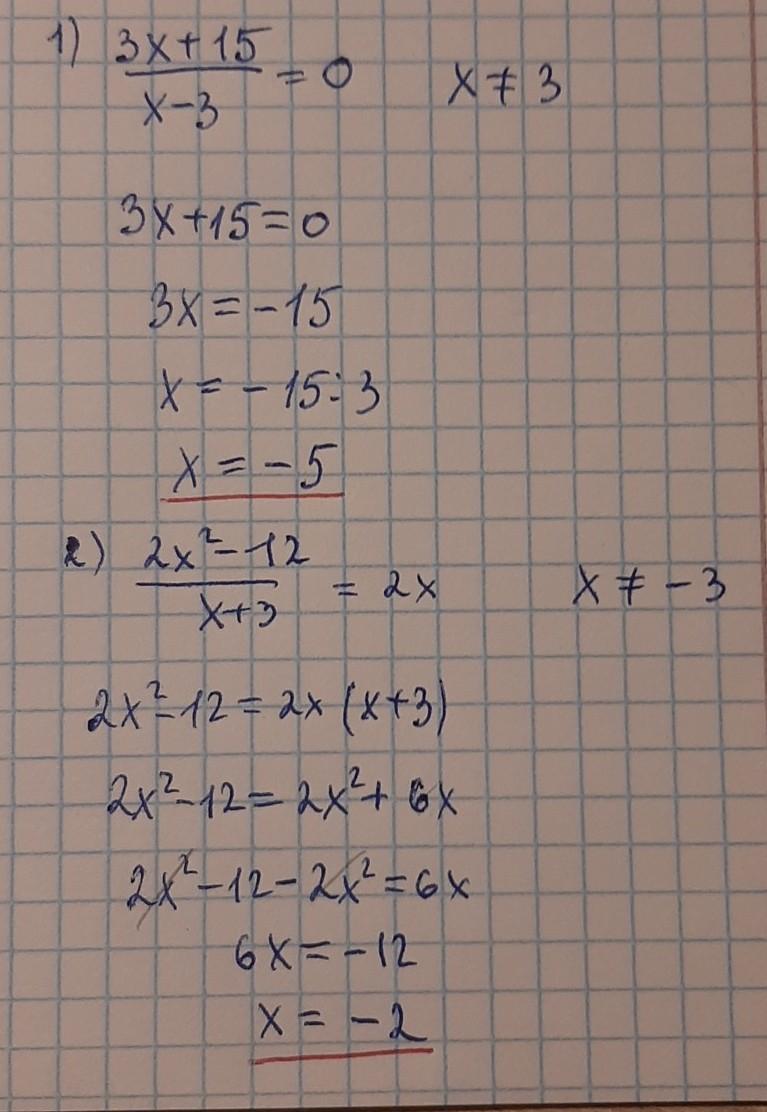 1) (3x+15)/(x-3) = 0    x ≠ 3
3x+15=0
3x = -15
x = -15:3
x = -5
2) (2x²-12)/(x+3) = 2x    x ≠ -3
2x²-12=2x(x+3)
2x²-12=2x²+6x
2x²-12-2x²=6x
6x=-12
x = -2